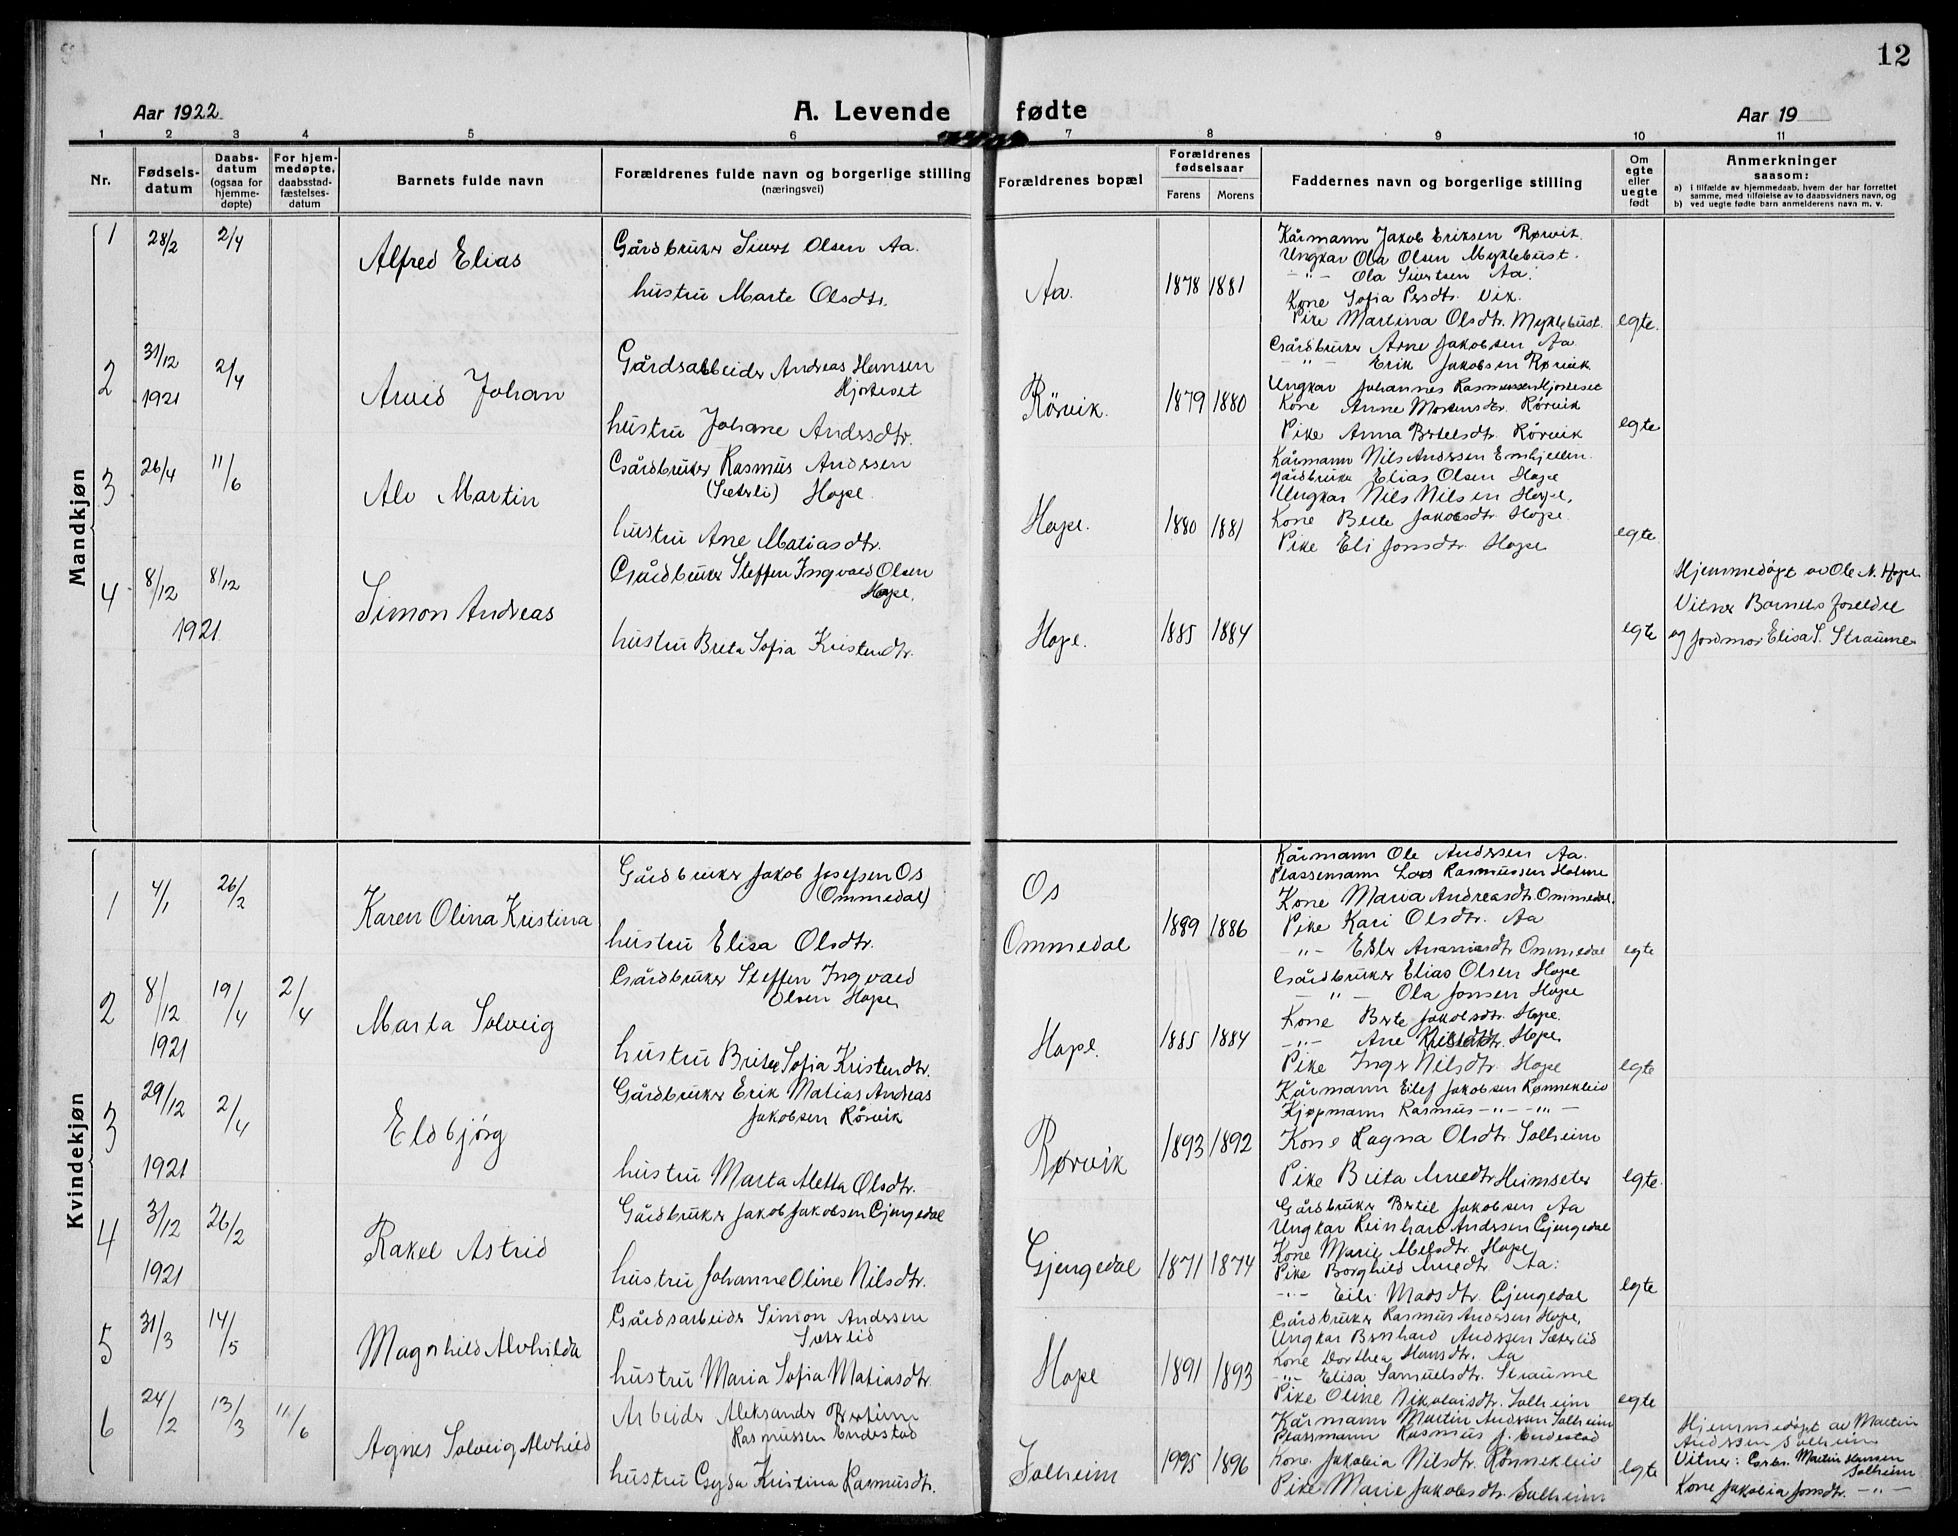 12
Aar 1922
A. Levende fødte
Aar 19
1 2 3 4 5 6 7 8 9 10 11
Nr.
Fødselsdatum
Daabsdatum (ogsaa for hjemmedøpte)
For hjemmedøpte, daabsstadfæstelsesdatum
Barnets fulde navn
Forældrenes fulde navn og borgerlige stilling (næringsvei)
Forældrenes bopæl
Forældrenes fødselsaar
Farens Morens
Faddernes navn og borgerlige stilling
Om egte eller uegte født
Anmerkninger saasom:
a) i tilfælde av hjemmedaab, hvem der har forrettet samme, med tilføielse av to daabsvidners navn, og
b) ved uegte fødte barn anmelderens navn m. v.
Mandkjøn
1 28/2 2/4
Alfred Elias
Gårdbruker Sivert Olsen Aa.
hustru Marte Olsdtr.
Aa. 1878 1881
Kårmann Jakob Eriksen Rørvik
Ungkar Ola Olsen Myklebust.
-"- Ola Sivertsen Aa.
Kone Sofia Persdtr. Vik.
Pike Martina Olsdtr. Myklebust.
egte.
2 31/12 1921 2/4
Arvid Johan
Gårdsarbeider Andreas Hansen
Hjorteset
hustru Johane Andersdtr.
Rørvik. 1879 1880
Gårdbruker Arne Jakobsen Aa
-"- Erik Jakobsen Rørvik
Ungkar Johannes Rasmussen Hjorteset
Kone Anne Mortensdtr. Rørvik
Pike Anna Bertelsdtr. Rørvik
egte
3 26/4 11/6
Alv Martin
Gårdbruker Rasmus Andersen
(Sæterli) Hope.
hustru Ane Matiasdtr.
Hope. 1880 1881
Kårmann Nils Andersen Emhjellen.
Gårdbruker Elias Olsen Hope
Ungkar Nils Nilsen Hope,
Kone Berte Jakobsdtr. Hope.
Pike Eli Jonsdtr. Hope
egte.
4 8/12 8/12
1921
Simon Andreas
Gårdbruker Steffen Ingvald Olsen
Hope,
hustru Brita Sofia Kristendtr.
Hope. 1885 1884
egte
Hjemmedøpt av Ole N. Hope
Vitner Barnets foreldre
og jordmor Elisa S. Straume
Kvindekjøn
1 4/1 26/2
Karen Olina Kristina
Gårdbruker Jakob Josefsen Os
(Ommedal)
hustru Elisa Olsdtr.
Os
Ommedal
1889 1886
Kårmann Ole Andersen Aa.
Plassemann Lars Rasmussen Holme
Kone Maria Andreasdtr. Ommedal.
Pike Kari Olsdtr. Aa
-"- Ester Ananiasdtr Ommedal
egte
2 8/12 1921 19/4 2/4
Marta Solveig
Gårdbruker Steffen Ingvald
Olsen Hope,
hustru Brita Sofia Kristendtr.
Hope. 1885 1884
Gårdbruker Elias Olsen Hope
-"- Ola Jonsen Hope
Kone Berte Jakobsdtr. Hope.
-"- Ane Hope.
Pike Inger Nilsdtr. Hope
egte
3 29/12 1921 2/4
Eldbjørg
Gårdbruker Erik Matias Andreas
Jakobsen Rørvik
hustru Marta Aletta Olsdtr.
Rørvik 1893 1892
Kårmann Eilef Jakobsen Rønnekleiv
Kjøpmann Rasmus -"- -"-
Kone Ragna Olsdtr. Solheim
Pike Brita Arnedtr. Heimseter
egte.
4 3/12 1921 26/2
Rakel Astrid
Gårdbruker Jakob Jakobsen Gjengedal
hustru Johanne Oline Nilsdtr.
Gjengedal 1871 1874
Gårdbruker Bertil Jakobsen Aa
Ungkar Reinhart Andersen Gjengedal
Kone Marie Abelsdtr. Hope,
Pike Borghild Arnedtr Aa.
-"- Eili Madsdtr. Gjengedal
egte
5 31/3 14/5
Magnhild Alvhilda
Gårdsarbeider Simon Andersen
Sæterlid
hustru Maria Sofia Matiasdtr.
Hope 1891 1893
Gårdbruker Rasmus Andersen Hope,
Ungkar Bernhard Andersen Sæterlid
Kone Dorthea Hansdtr. Aa
-"- Elisa Samuelsdtr. Straume
Pike Oline Nikolaisdtr. Solheim
egte
6 24/2 13/3 11/6
Agnes Solveig Alvhild
Arbeider Aleksander Bertinus
Rasmussen Endestad
hustru Gyda Kristina Rasmusdtr.
Solheim 1995 1896
Kårmann Martin Andersen Solheim
Plassmann Rasmus J. Endestad
Kone Jakobia Nilsdtr. Rønnekleiv
Pike Marie Jakobsdtr. Solheim
egte
Hjemmedøpt av Martin
Andersen Solheim
Vitner: Martin Hansen
Solheim
Kone Jakobia Jonsdtr. -"-